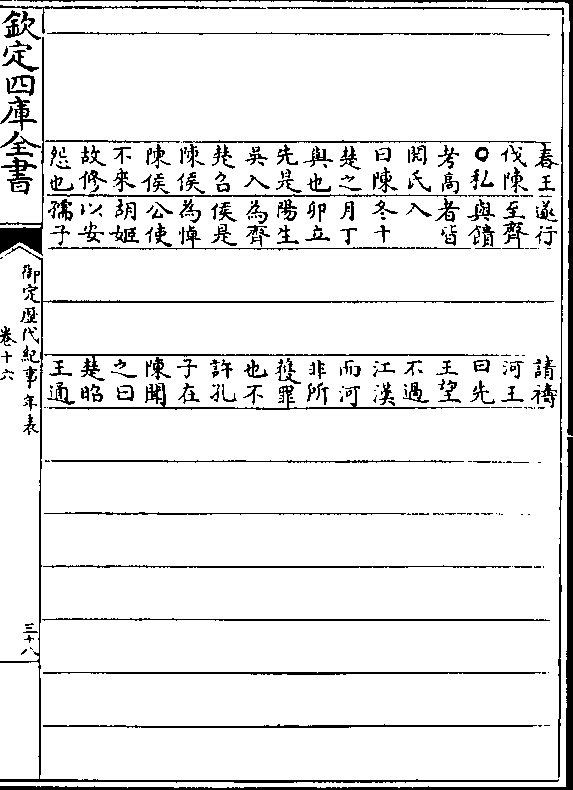 欽定四庫全書
春王
伐陳
〇私
考高
閲氏
曰陳
楚之
與也
先是
吳入
楚召
陳侯
陳侯
不來
故修
怨也
遂行
至齊
與饋
者皆
入
冬十
月丁
卯立
陽生
為齊
侯是
為悼
公使
胡姬
以安
孺子
請禱
河王
曰先
王望
不過
江漢
而河
非所
獲罪
也不
許孔
子在
陳聞
之曰
楚昭
王通
御定歷代紀事年表
卷十六
三十八